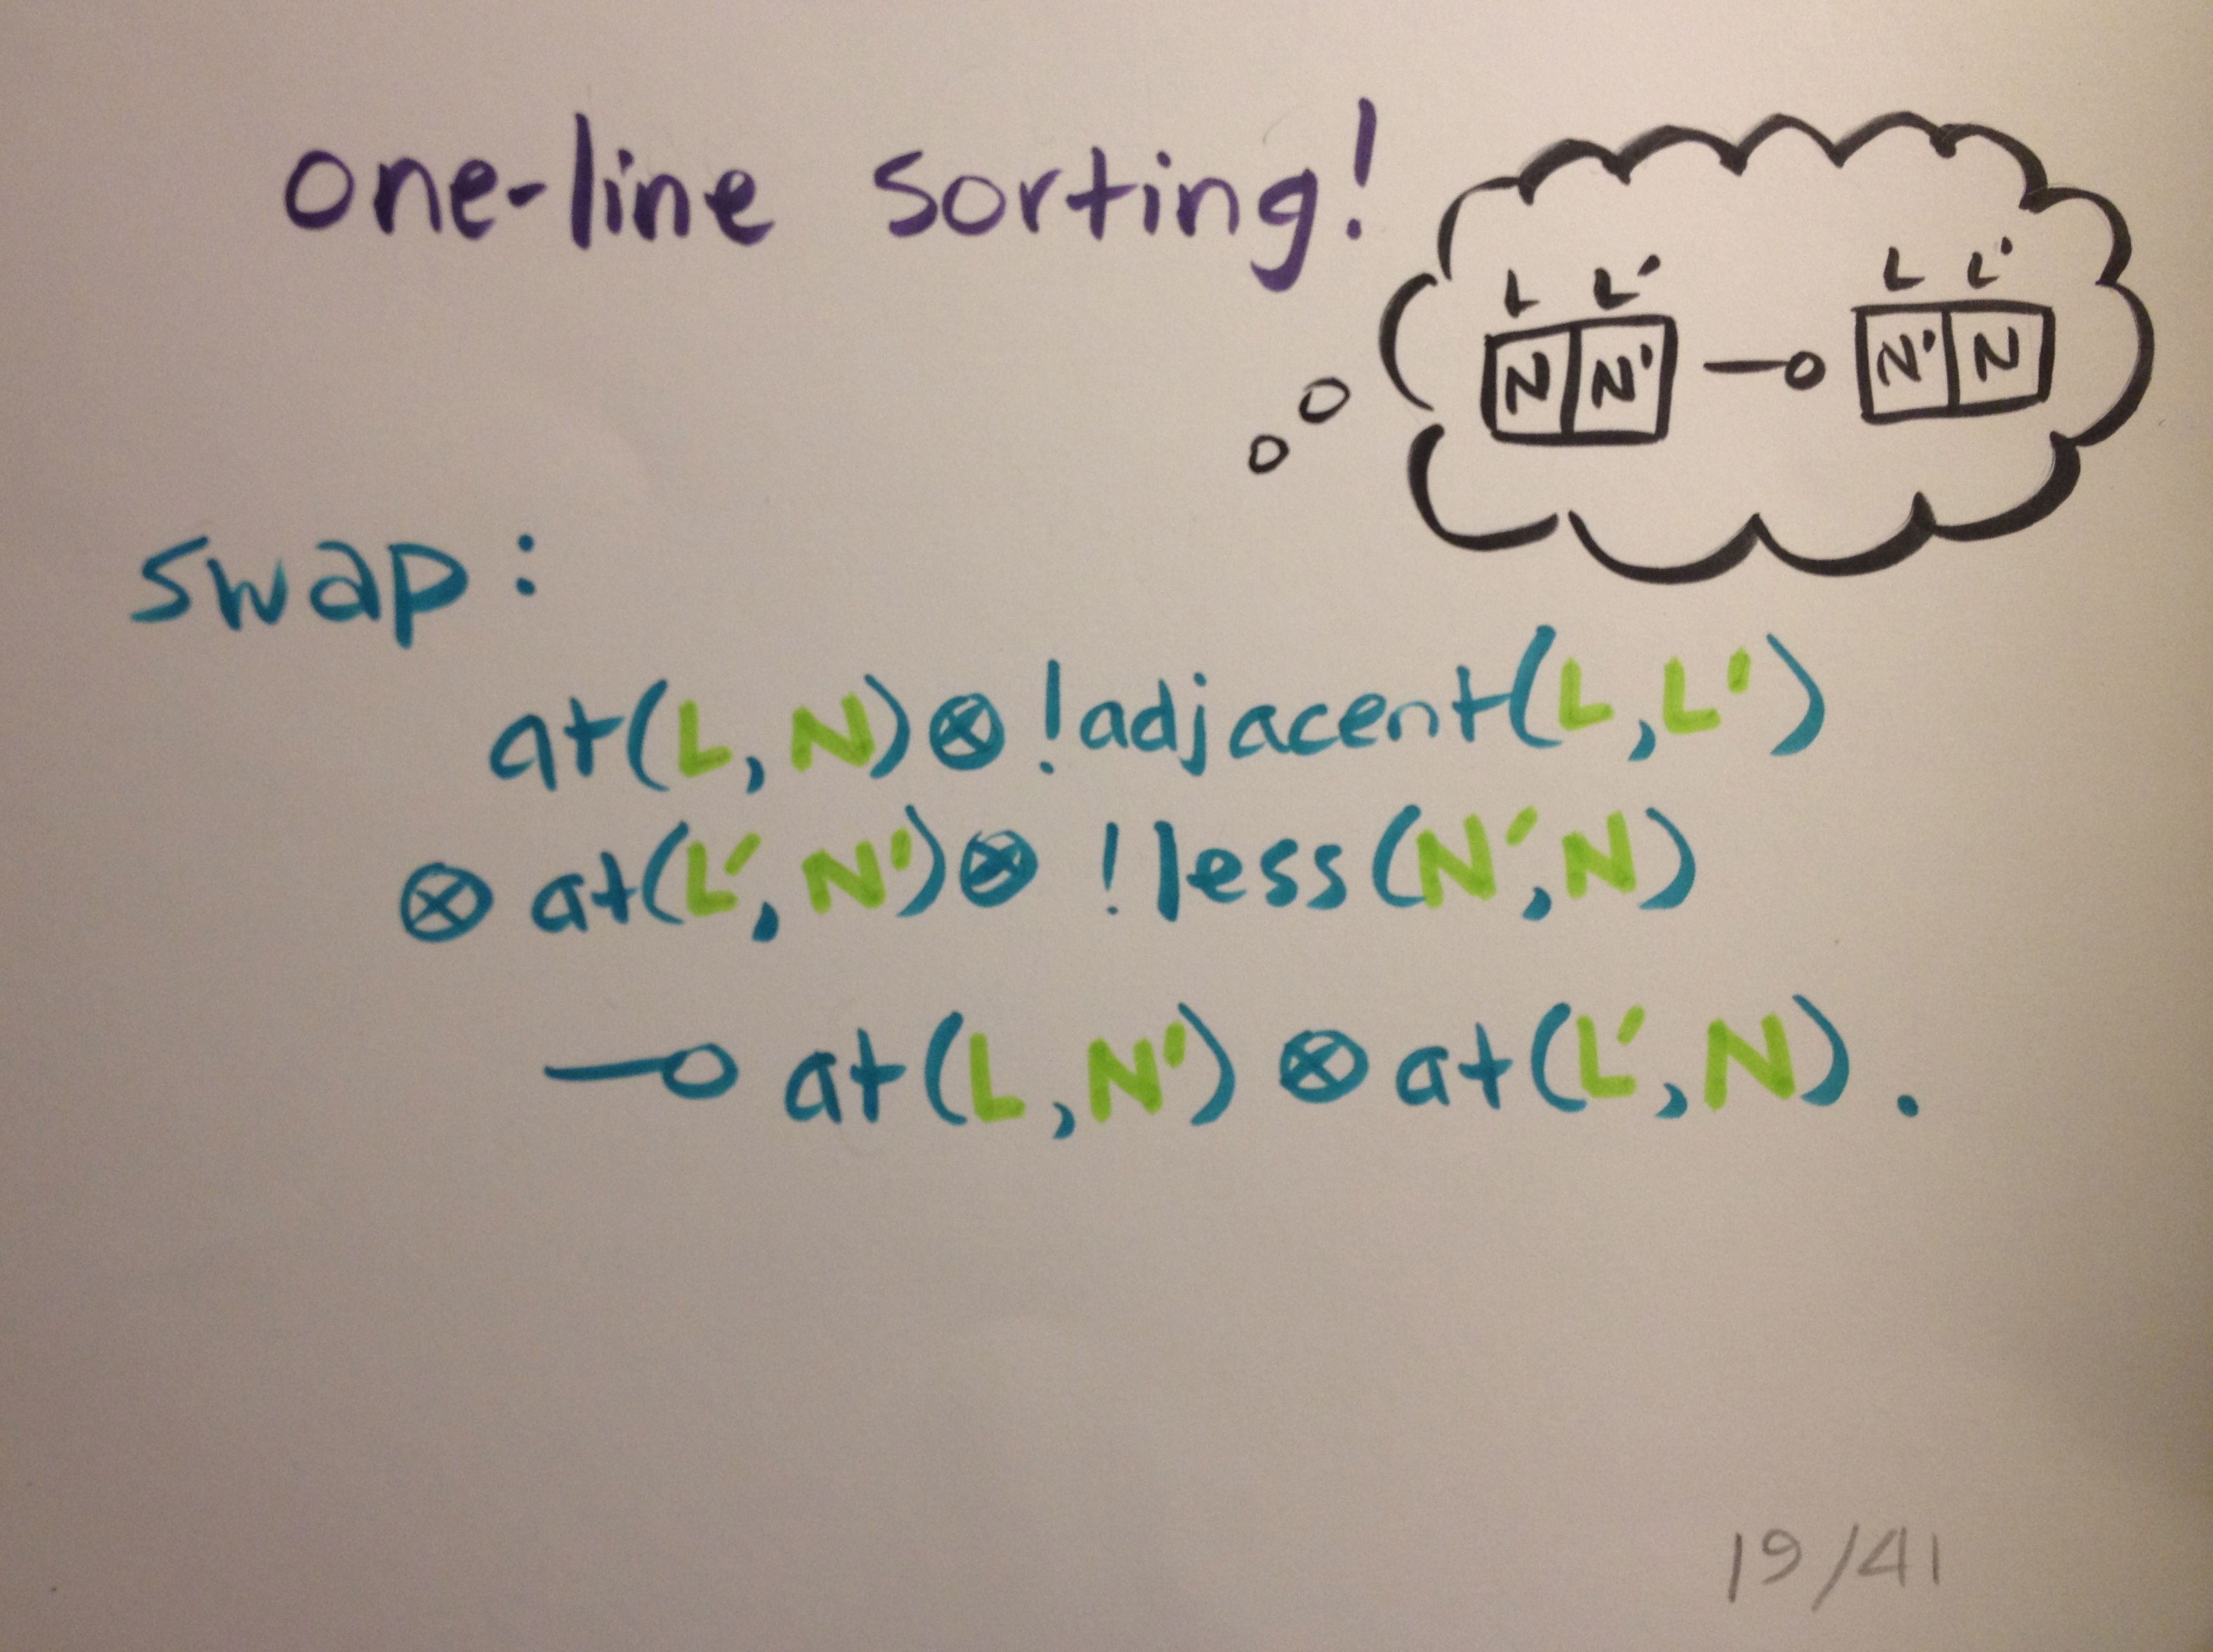 one-line sorting!
L L' L L'
N N' ⊸ N' N
swap:
at(L, N) ⊗ !adjacent(L, L')
⊗ at(L', N') ⊗ !less(N', N)
⊸ at(L, N') ⊗ at(L', N).
19/41